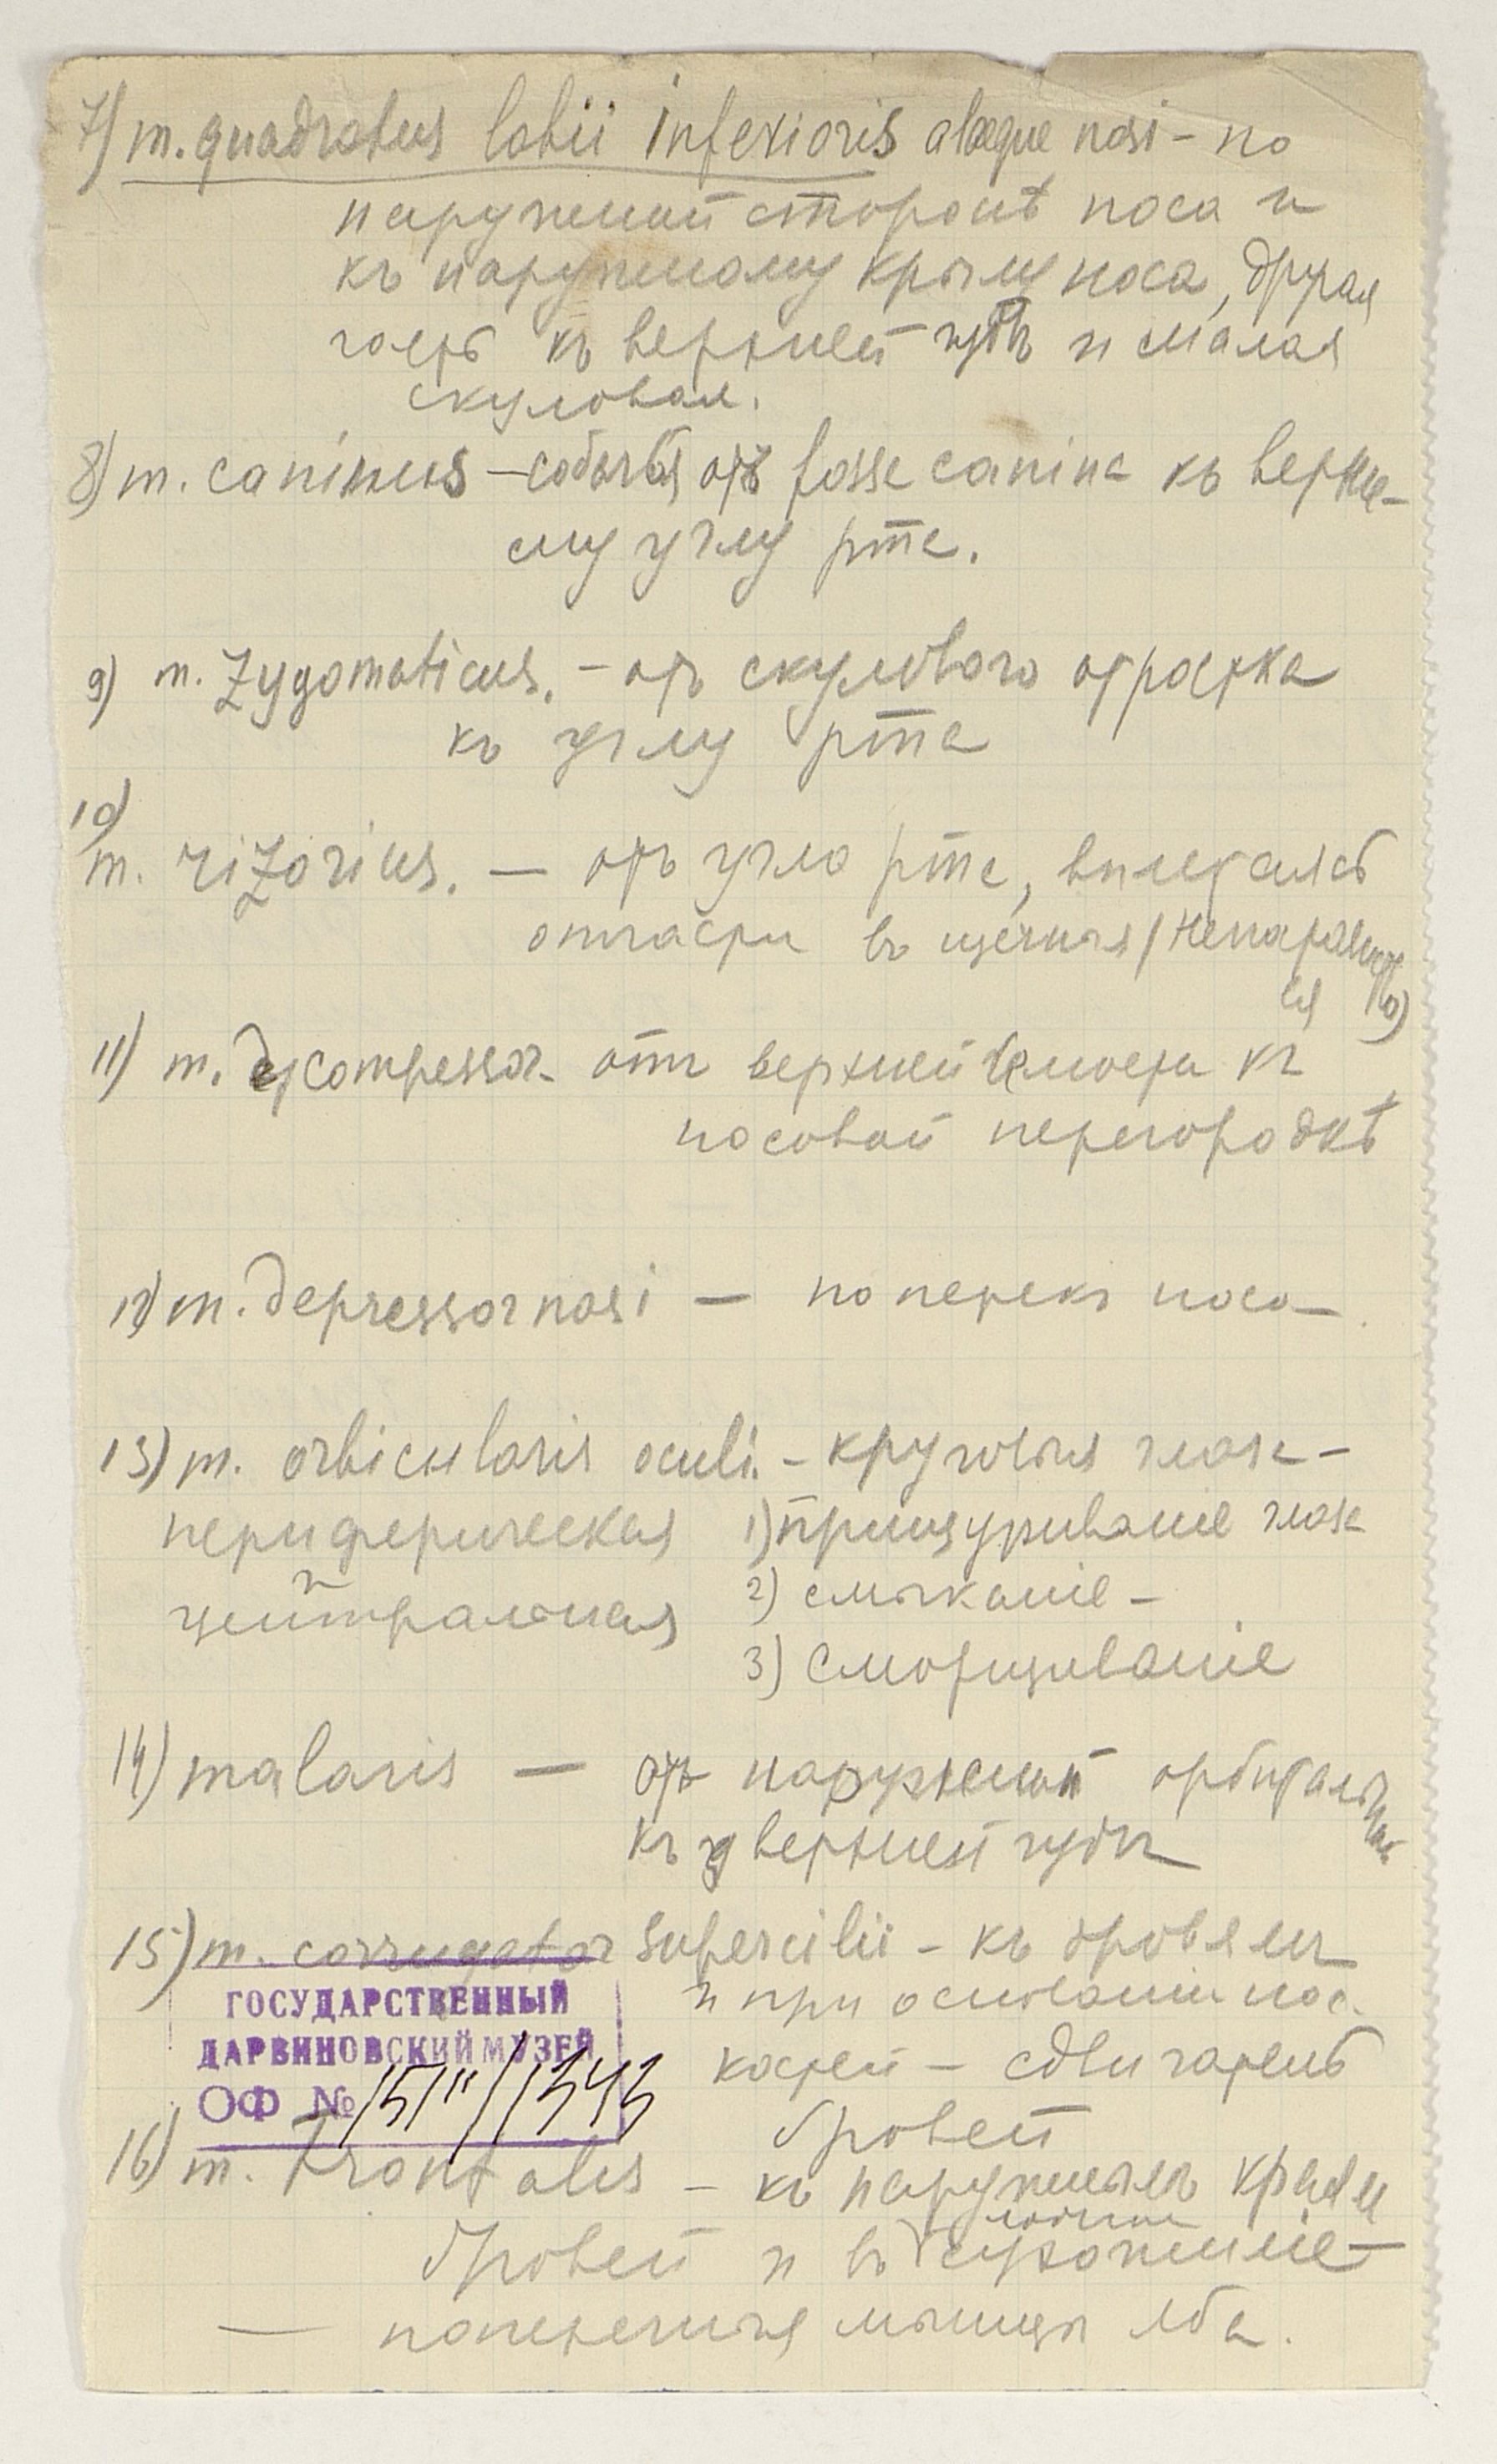 7) m. quadratus labii inferioris alaeque nasi - по
наружной сторонѣ носа и
къ наружному крылу носа, другая
часть къ верхней губѣ и малая
скуловая.
8) m. caninus - собачья отъ fosse canine къ верхне-
му углу рта.
9) m. Zygomaticus. - отъ скулового отростка
къ углу рта
10)
m. rizorius. — отъ угла рта, вплетаясь
отчасти въ щечныя
11) m. compessor - отъ верхней челюсти къ
носовой перегородкѣ
12) m. depressor nasi — поперекъ носа
13) m. orbicularis oculi. - круговыя глаза -
периферическая 1) прищуриваніе глаза
и
центральная 2) смыканіе -
3) сморщиваніе
14) malaris — отъ наружной орбитальной
къ верхней губѣ
15) m. corrugator supercilii - къ бровямъ
и при основании нос.
костей - сдвигатель
бровей
ГОСУДАРСТВЕННЫЙ
ДАРВИНОВСКИЙ МУЗЕЙ
ОФ № 15111/1343
16) m. Frontalis - къ наружнымъ краям
бровей и въ сухожиліе -
— поперечныя мышцы лба.